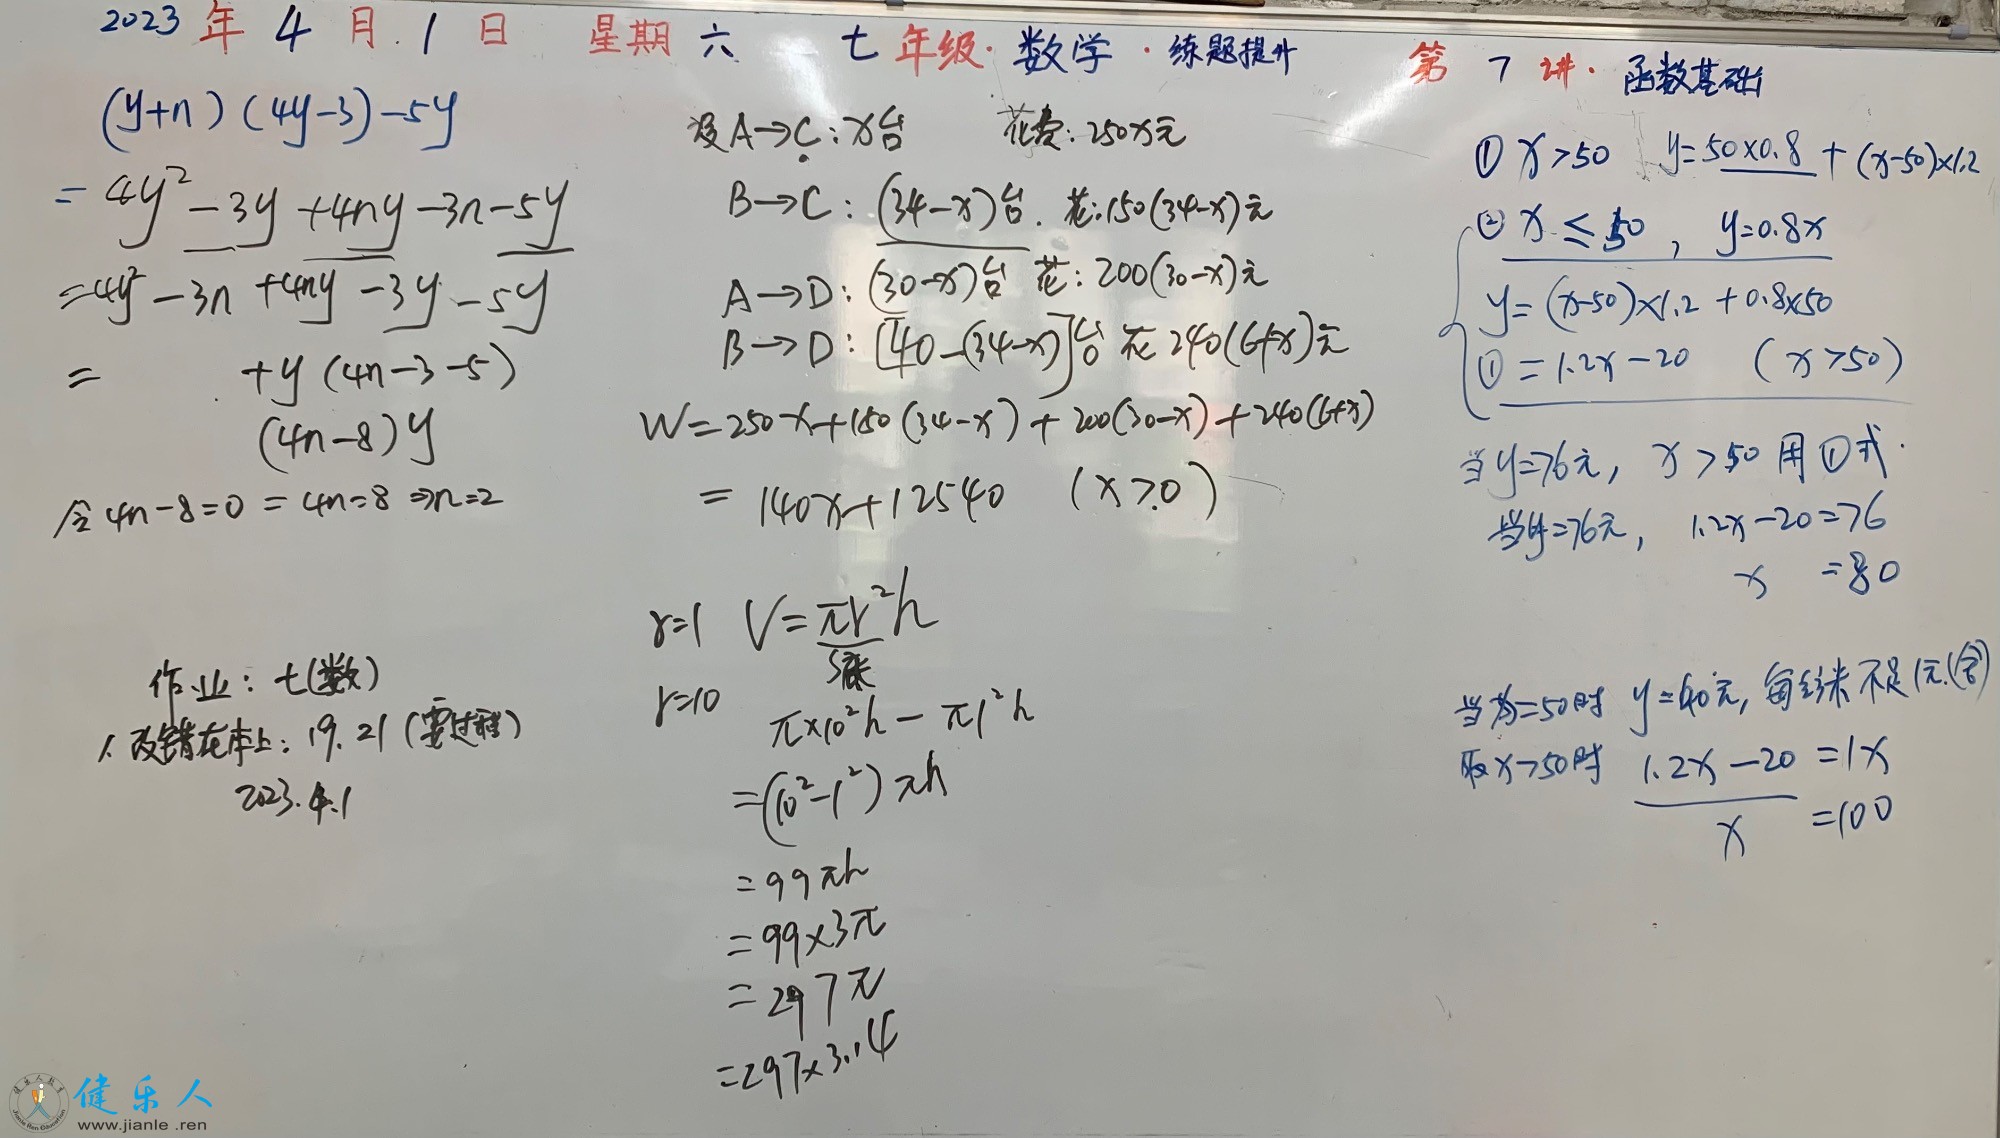 2023年4月.1日 星期六 七年级·数学·练题提升 第7讲·函数基础
(y+n)(4y-3)-5y
=4y²-3y+4ny-3n-5y
=4y²-3n+4ny-3y-5y
= +y(4n-3-5)
(4n-8)y
令4n-8=0=4n=8⇒n=2
作业:七(数)
1.改错在本上:19.21(要过程)
2023.4.1
设A→C:x台 花费:250x元
B→C:(34-x)台.花:150(34-x)元
A→D:(30-x)台 花:200(30-x)元
B→D:[40-(34-x)]台 花240(6+x)元
W=250x+150(34-x)+200(30-x)+240(6+x)
=140x+12540 (x≥0)
r=1 V=πr²h
S底
r=10
π×10²h-π1²h
=(10²-1²)πh
=99πh
=99×3π
=297π
=297×3.14
①x>50 y=50×0.8+(x-50)×1.2
②x≤50,y=0.8x
y=(x-50)×1.2+0.8×50
①=1.2x-20 (x>50)
当y=76元,x>50用①式.
当y=76元,1.2x-20=76
x=80
当x=50时 y=40元,每立方米不足1元.(舍)
取x>50时 1.2x-20=1x
x=100
健乐人
www.jianle.ren